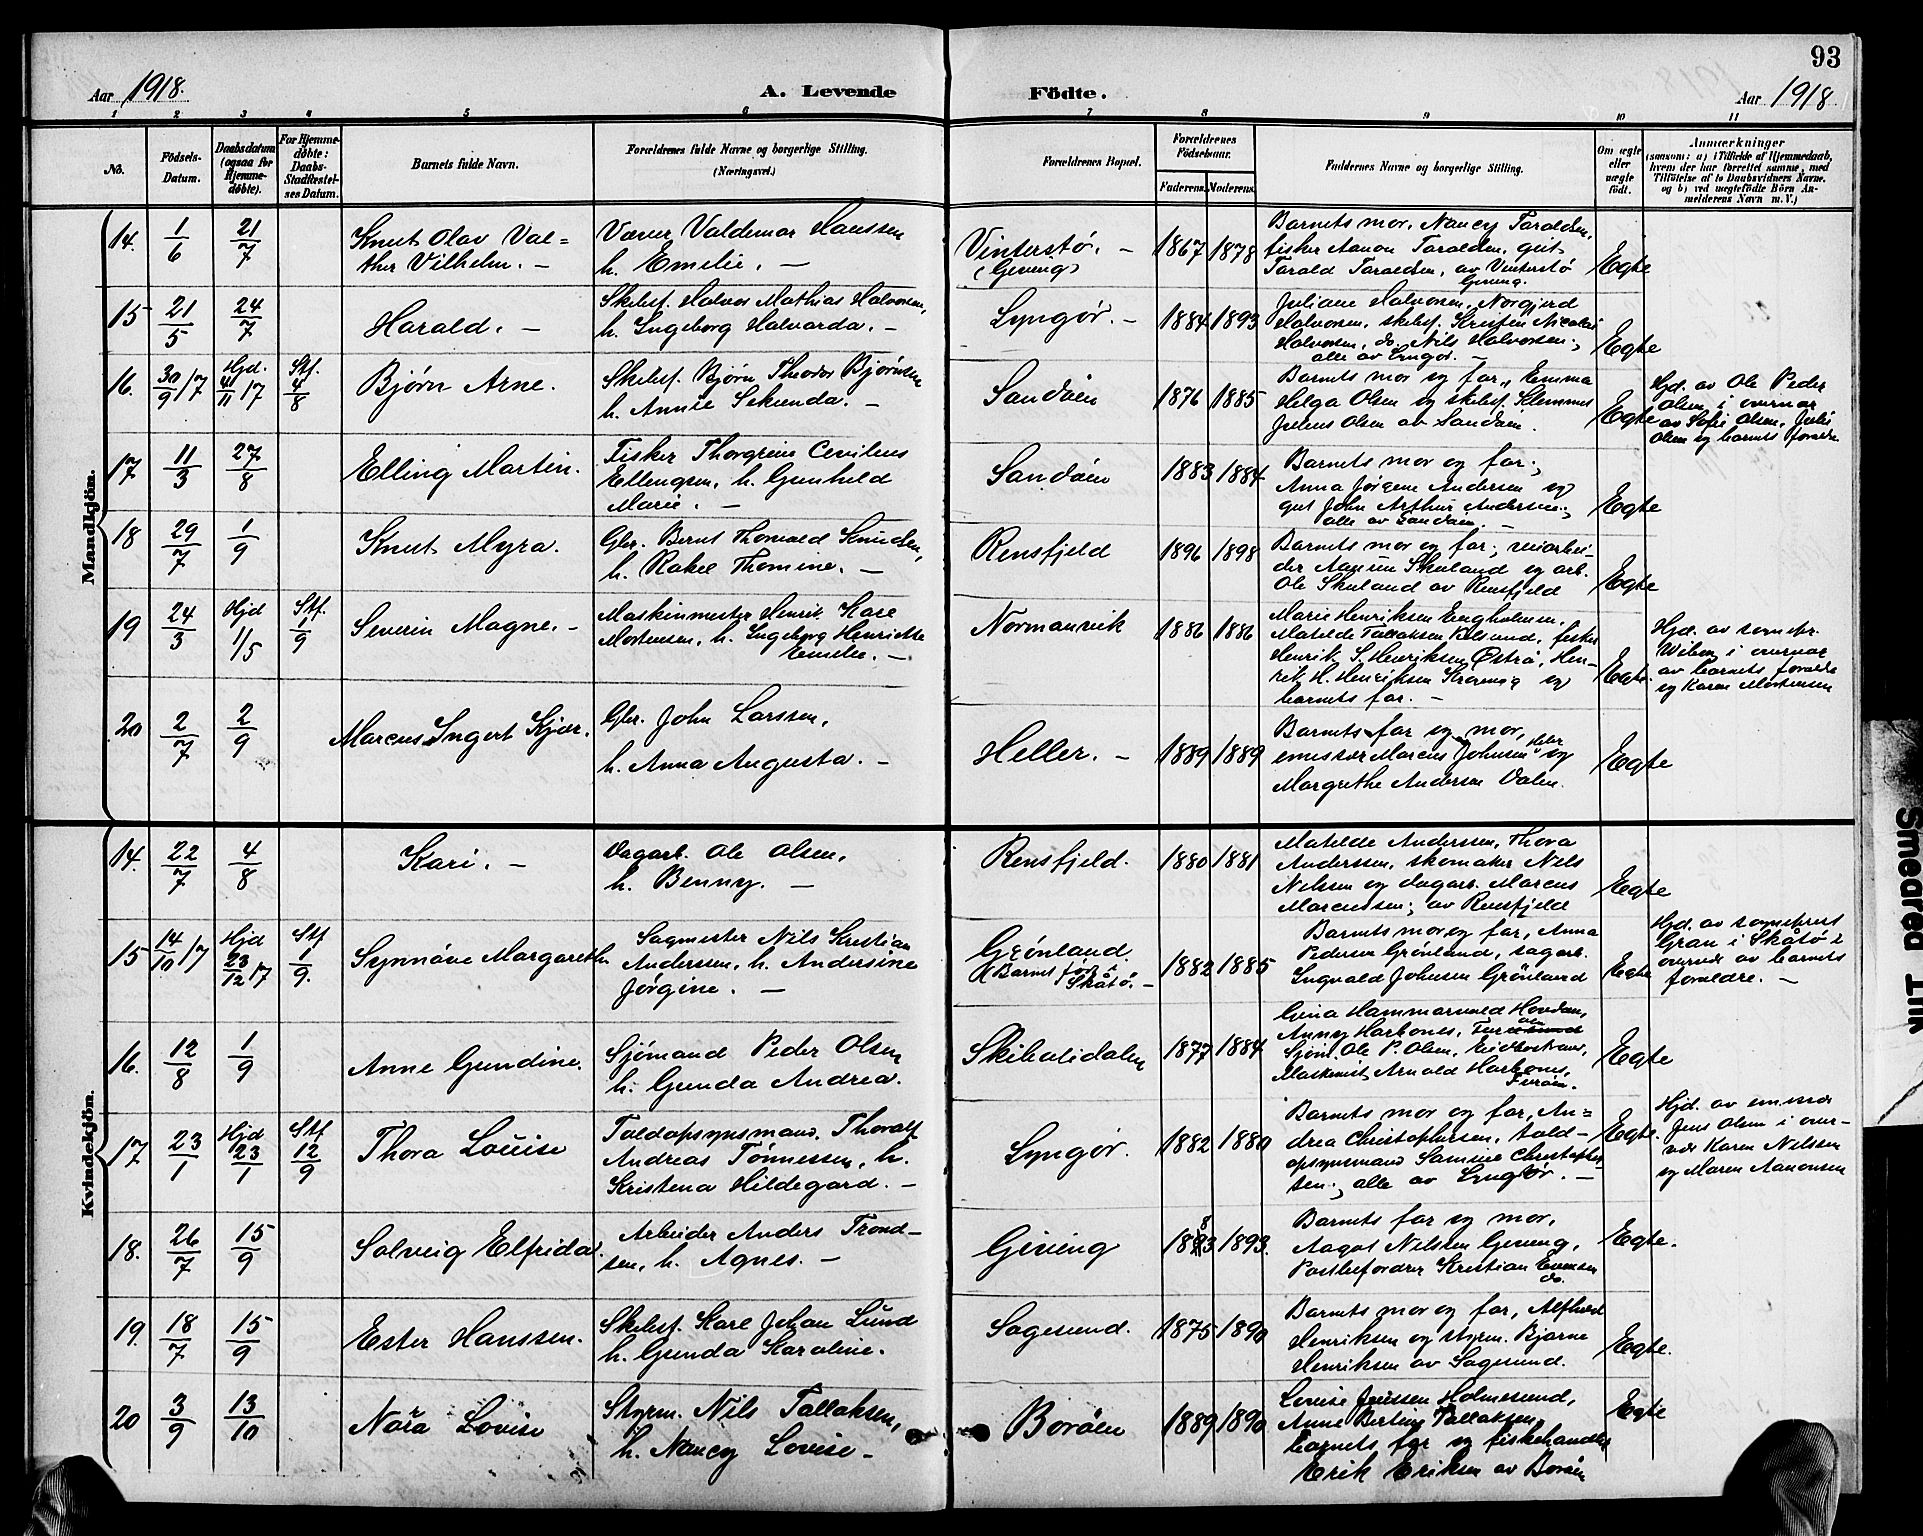 93
Aar 1918.
A. Levende
Födte.
Aar 1918
1 2 3 4 5 6 7 8 9 10 11
No.
Födsels-
Datum.
Daabsdatum
(ogsaa for
Hjemme-
döbte).
For Hjemme-
döbte:
Daabs-
Stadfæstel-
ses Datum.
Barnets fulde Navn.
Forældrenes fulde Navne og borgerlige Stilling.
(Næringsvei.)
Forældrenes Bopæl.
Forældrenes
Födselsaar.
Faderens.
Moderens.
Faddernes Navne og borgerlige Stilling.
Om ægte
eller
uægte
født.
Anmærkninger
(saasom: a) i Tilfælde af Hjemmedaab,
hvem der har forrettet samme, med
Tilføielse af to Daabsvidners Navne,
og b) ved uægtefödte Börn An-
melderens Navn m. V.)
Mandkjön.
14. 1/6 21/7
Knut Olav Val=
ther Vilhelm. —
Værer Valdemar Hanssen
h. Emilie. —
Vinterstø. —
(Geveng)
1867 1878
Barnets mor, Nancy Taraldsen,
fisker Aanon Taraldsen, gut
Tarald Taraldsen, av Vinterstø
Geveng.
Egte
15 21/5 24/7
Harald. —
Skibsf. Halvor Mathias Halvorsen,
h. Ingeborg Halvarda. —
Lyngør. —
1884 1893
Juliane Halvorsen, Norgjerd
Halvorsen, skibsf. Kristen Nicolai
Halvorsen, do. Nils Halvorsen;
alle av Lyngør. —
Egte
16. 30/9 17 Hjd. 4/11 17 Stf. 4/8
Bjørn Arne.
Skibsf. Bjørn Theodor Bjørnsen
h. Annie Sekunda. —
Sandøen
1876 1885
Barnets mor og far, Emma
Helga Olsen og skibsf. Klemmet
Julius Olsen av Sandøen.
Egte
Hjd. av Ole Peder
Olsen i overvær
av Sofie Olsen, Julie
Olsen og barnets forældre
17 11/3 27/8
Elling Martin.
Fisker Thorgrim Cevilius
Ellengsen, h. Gunhild
Marie. —
Sandøen
1883 1884
Barnets mor og far;
Anna Jørgine Andersen og
gut John Arthur Andersen;
alle av Sandøen. —
Egte
18 29/7 1/9
Knut Myra.
Gbr. Bernt Thorvald Knudsen,
h. Rakel Thomine. —
Rensfjeld
1896 1898
Barnets mor og far; veiarbei-
der Aanon Skuland og arb.
Ole Skuland av Rensfjeld
Egte
19 24/3 Hjd 1/5 Stf. 1/9
Severin Magne. —
Maskinmester Henrik Kare
Mortensen, h. Ingebjørg Henriette
Emelie. —
Normannvik
1886 1886
Marie Henriksen Engholmen,
Matilde Tallaksen Kilsund, fisker
Henrik S. Henriksen Østrå, Hen-
rik H. Henriksen og
barnets far. —
Egte.
Hjd. av sognepr.
Wilson i overvær
av barnets forældre
og Karen Mortensen
20 2/7 2/9
Marcus Ingert Kjær.
Gbr. John Larssen,
h. Anna Augusta. —
Heller. —
1889 1889
Barnets far og mor,
emissær Marcus Johnsen og
Margrethe Andersen Valen.
Egte
Kvindekjön.
14. 22/7 4/8
Kari. —
Dagarb. Ole Olsen,
h. Benny. —
Rensfjeld.
1880 1881
Matilde Anderssen, Thora
Anderssen, skomaker Nils
Nilssen og dagarb. Marcus
Marcussen; av Rensfjeld
Egte
15 14/10 17 Hjd 23/12 17 Stf 1/9.
Synnöve Margareth.
Sagmester Nils Kristian
Anderssen, h. Andersine
Jørgine. —
Grønland.
(Barnet født i
Skåtø. —
1882 1885
Barnets mor og far, Anna
Pedersen Grønland, sagarb.
Ingvald Johnsen Grönland
Egte
Hjd. av sogneprest
Gran i Skåtø i
overvær av barnets
forældre. —
16. 12/8 1/9
Anne Gundine.
Sjömand Peder Olsen
h. Gunda Andrea.
Skibatsdalen
1877 1884
Gina Hammarvold Hovdan,
Anny Harbones,
Sjöm. Ole P. Olsen, Eidbostrand,
Maskinist Arnold Harbones,
Furøen.
Egte
17 23/1 Hjd 23/1 Stf 12/9
Thora Louise
Toldopsynsmand. Thoralf
Andreas Tönnessen, h.
Kristina Hildegard. —
Lyngør.
1882 1880
Barnets mor og far, An=
drea Christophersen, told-
opsynsmand Samine Christopher-
sen; alle av Lyngør. —
Egte.
Hjd. av emissær
Jens Olsen i over-
vær Karen Nilsen
og Maren Aanonsen
18. 26/7 15/9
Solveig Elfrida.
Arbeider Anders Trond-
sen, h. Agnes. —
Geveng
1883 1893.
Barnets far og mor,
Aagot Nilsen Geveng,
Postbefordrer Kristian Evensen
do.
Egte.
19. 18/7 15/9
Ester Hanssen.
Skibsf. Karl Johan Lund
h. Gunda Karoline.
Sagesund.
1875 1890
Barnets mor og far, Alfhild
Henriksen og styrm. Bjarne
Henriksen av Sagesund.
Egte.
20 3/9 13/10
Nora Lovise
Styrm. Nils Tallaksen,
h. Nancy Lovise —
Borøen
1889 1890
Lovise Jenssen Holmesund,
Anne Bertine Tallaksen,
barnets far og fiskehandler
Erik Eriksen av Borøen
Egte
Smeared Ink